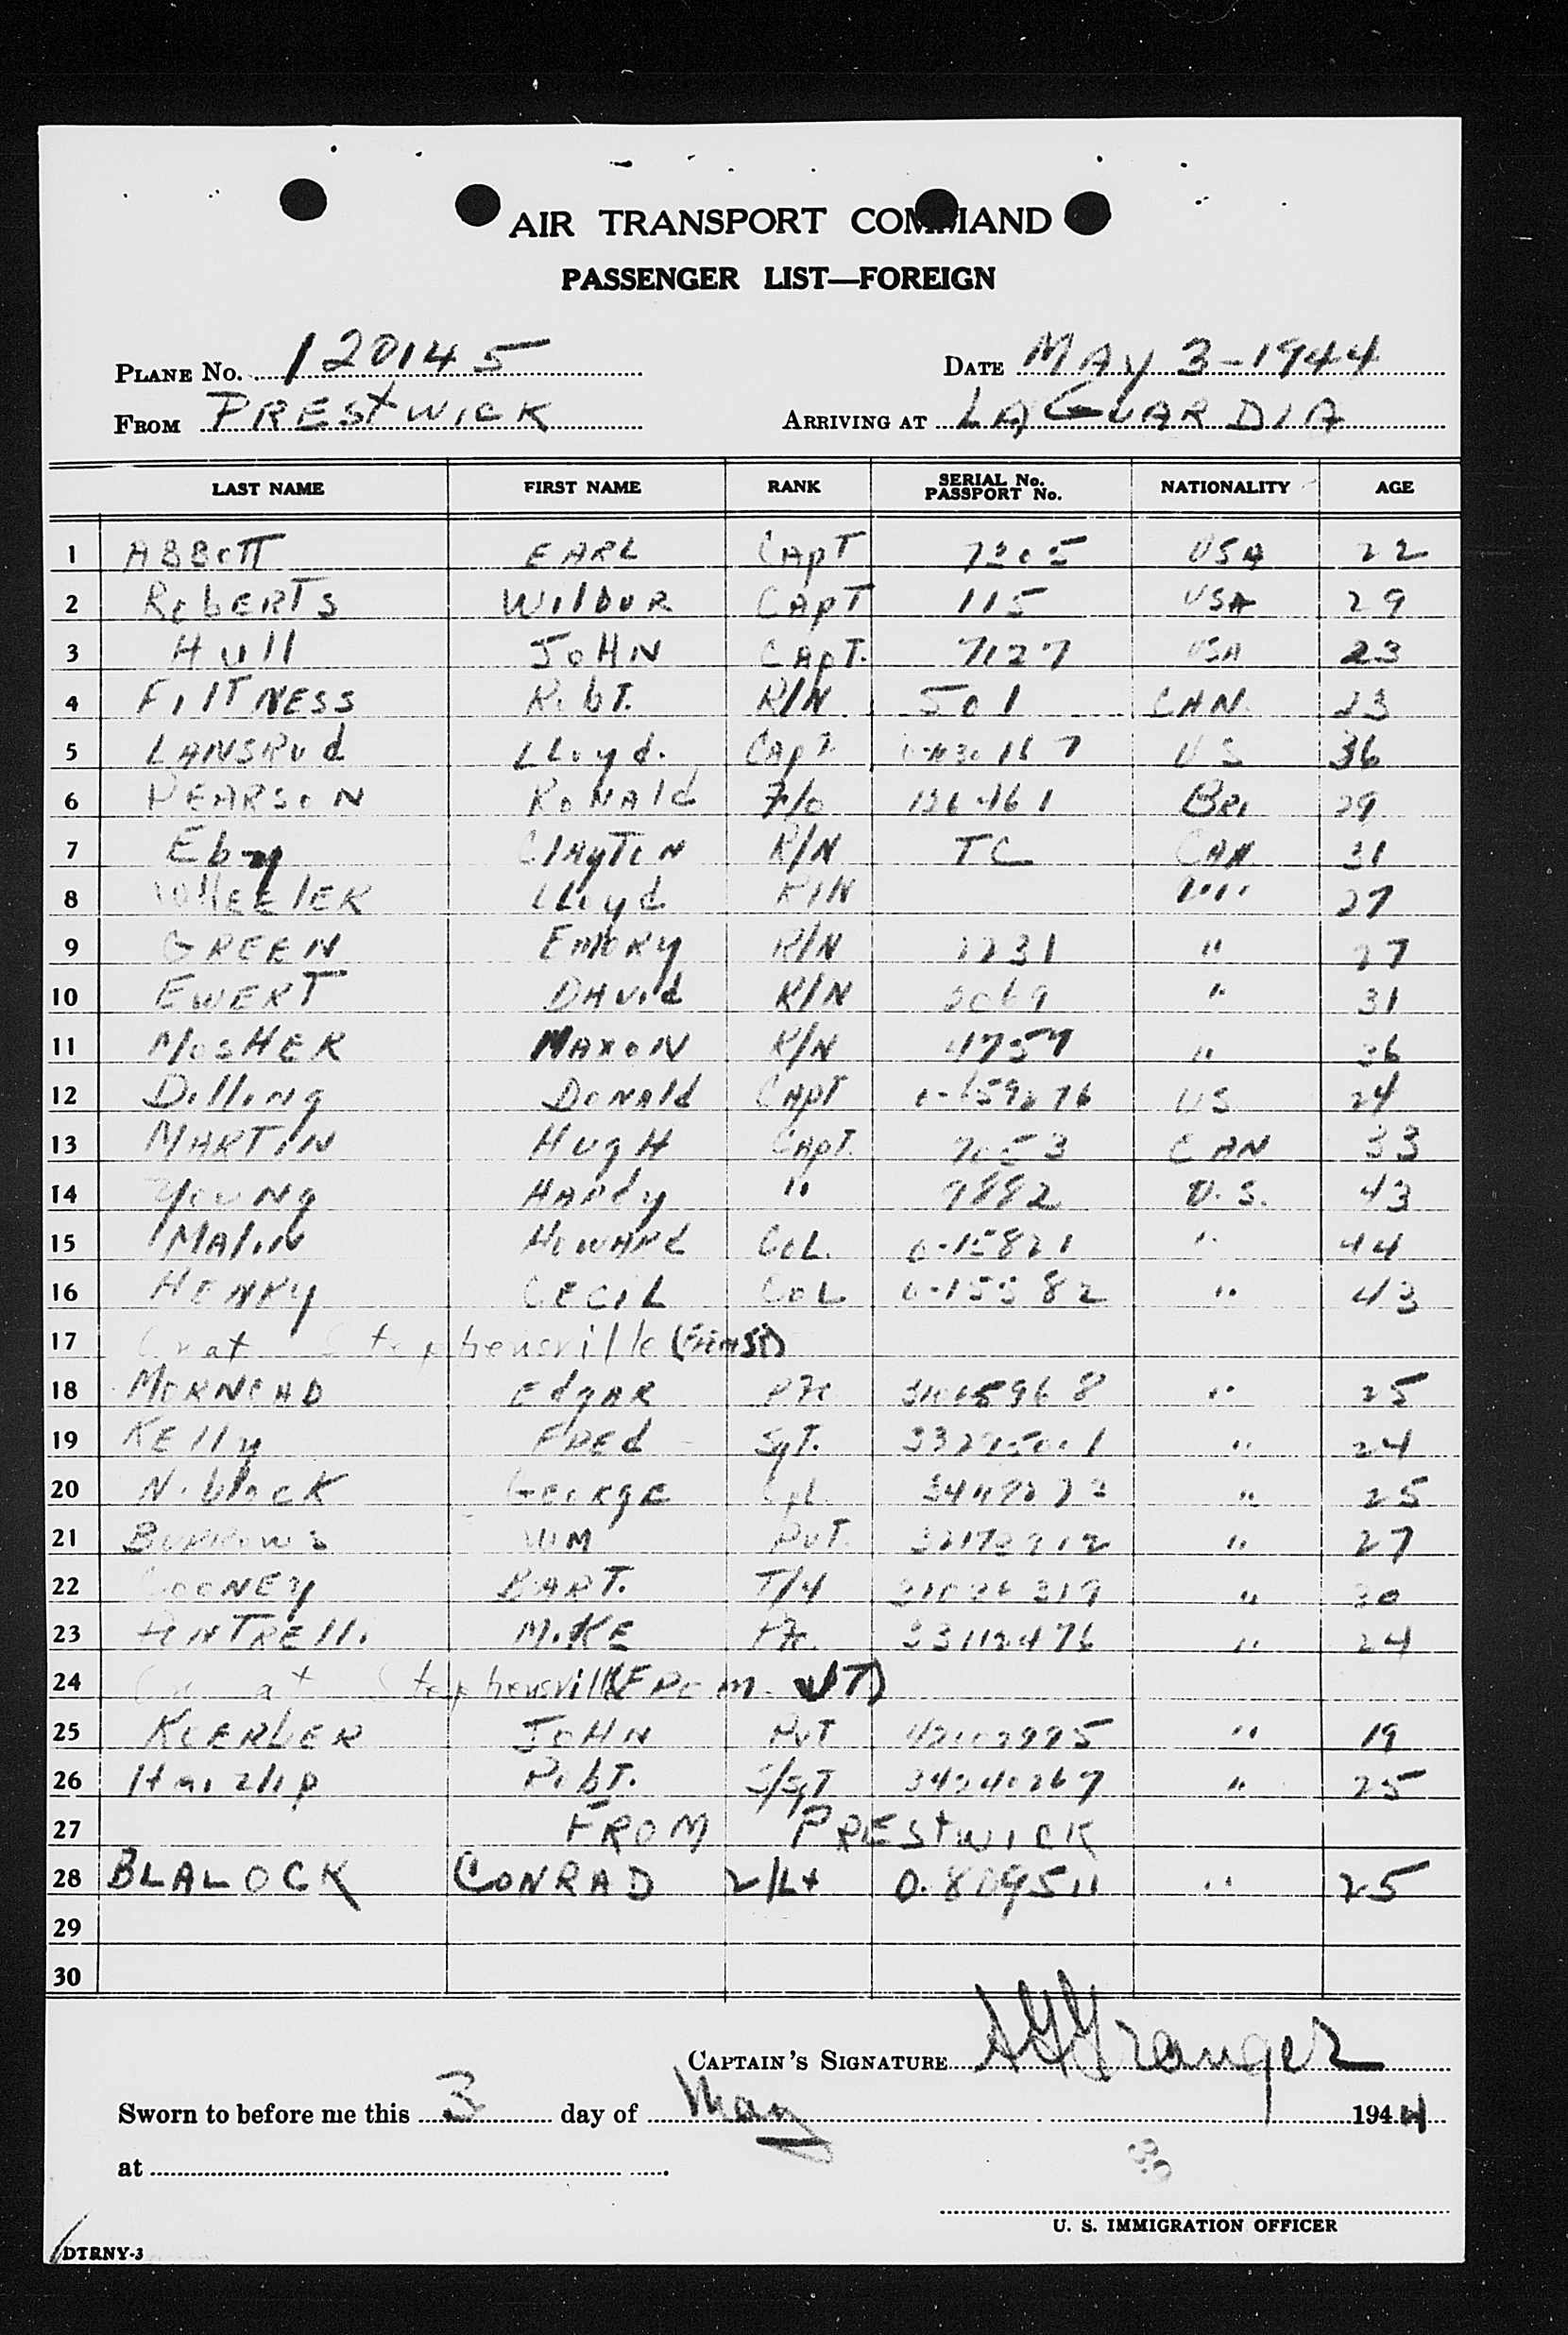 AIR TRANSPORT COMMAND
PASSENGER LIST—FOREIGN
PLANE No. 120145 DATE MAY 3-1944
FROM PRESTWICK ARRIVING AT LAGUARDIA
LAST NAME FIRST NAME RANK SERIAL No. PASSPORT No. NATIONALITY AGE
1 ABBOTT EARL CAPT 7205 USA 22
2 ROBERTS WILBUR CAPT 115 USA 29
3 HULL JOHN CAPT. 7127 USA 23
4 FILTNESS ROBT. R/N 501 CAN. 23
5 LANSRUD LLOYD. CAPT US 36
6 PEARSON RONALD F/O BRI 29
7 Eby CLAYTON R/N TC CAN 31
8 WHEELER LLOYD R/N " " 27
9 GREEN EMORY R/N 2231 " 27
10 EWERT DAVID R/N 3069 " 31
11 MOSHER MAXON R/N 4757 " 36
12 DILLING DONALD CAPT US 24
13 MARTIN HUGH CAPT. 7053 CAN 33
14 YOUNG HARDY " 9882 U.S. 43
15 MALIN HOWARD COL. O-15821 " 44
16 HENRY CECIL COL O-15582 " 43
17 at Stephensville
18 EDGAR Pfc " 25
19 KELLY FRED SGT. " 24
20 Niblock GEORGE Cpl " 25
21 Burrows WM PVT. " 27
22 COONEY BART. T/4 " 30
23 MIKE Pfc. 33112476 " 24
24 at Stephensville (FROM
25 KOERBER JOHN PVT " 19
26 Haizlip ROBT. S/SGT " 25
27 FROM PRESTWICK
28 BLALOCK CONRAD 2/Lt O-809511 " 25
29
30
CAPTAIN'S SIGNATURE Granger
Sworn to before me this 3 day of May 1944
at
U. S. IMMIGRATION OFFICER
DTRNY-3